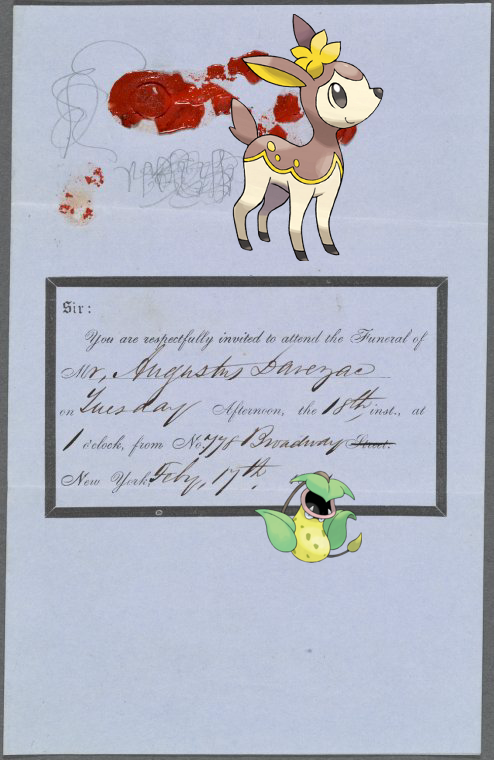 Sir:
You are respectfully invited to attend the Funeral of
Mr. Augustus Davezac
on Tuesday Afternoon, the 18th, inst., at
1 o'clock, from No. 778 Broadway Street.
New York, Feby, 17th.